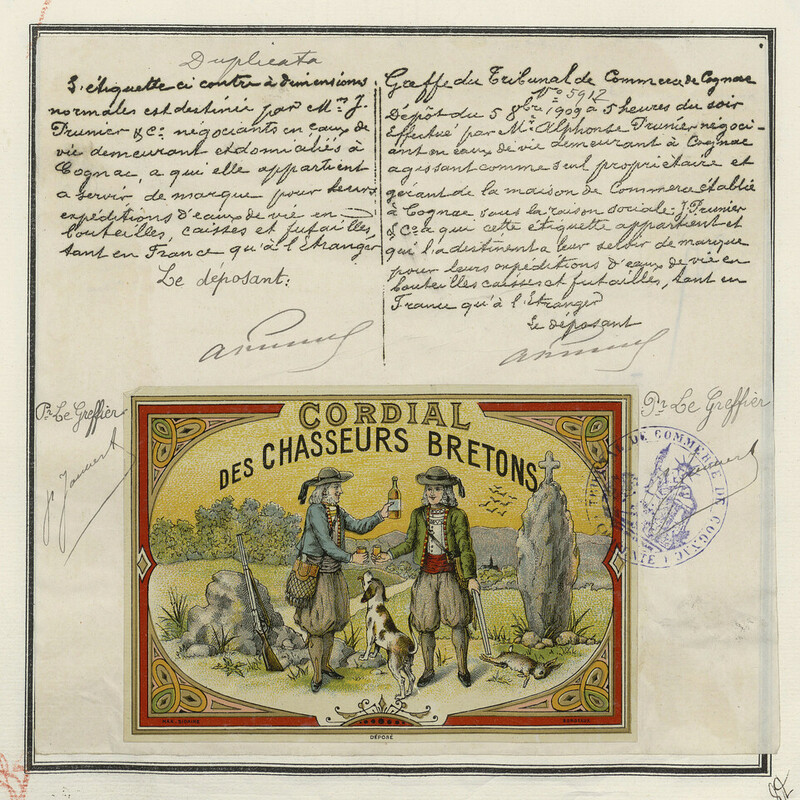 Duplicata
L'étiquette ci contre à dimensions
normales est destinée par M.rs J.
Prunier & Cie négociants en eaux de
vie demeurant et domiciliés à
Cognac, a qui elle appartient
a servir de marque pour leurs
expéditions d'eaux de vie en
bouteilles, caisses et futailles,
tant en France qu'à l'Etranger
Le déposant:
Greffe du Tribunal de Commerce de Cognac
No 5917
Dépôt du 5 8bre 1909 à 5 heures du soir
Effectué par Mr Alphonse Prunier négoci-
ant en eaux de vie demeurant à Cognac
agissant comme seul propriétaire et
gérant de la maison de Commerce établie
à Cognac sous la raison sociale J. Prunier
& Co a qui cette étiquette appartient et
qui l'a destinent a leur servir de marque
pour leurs expéditions d'eaux de vie en
bouteilles caisses et futailles, tant en
France qu'à l'Etranger
Le déposant
Pr Le Greffier
Pr Le Greffier
CORDIAL
DES CHASSEURS BRETONS
TRIBUNAL DE COMMERCE DE COGNAC
DÉPOSÉ